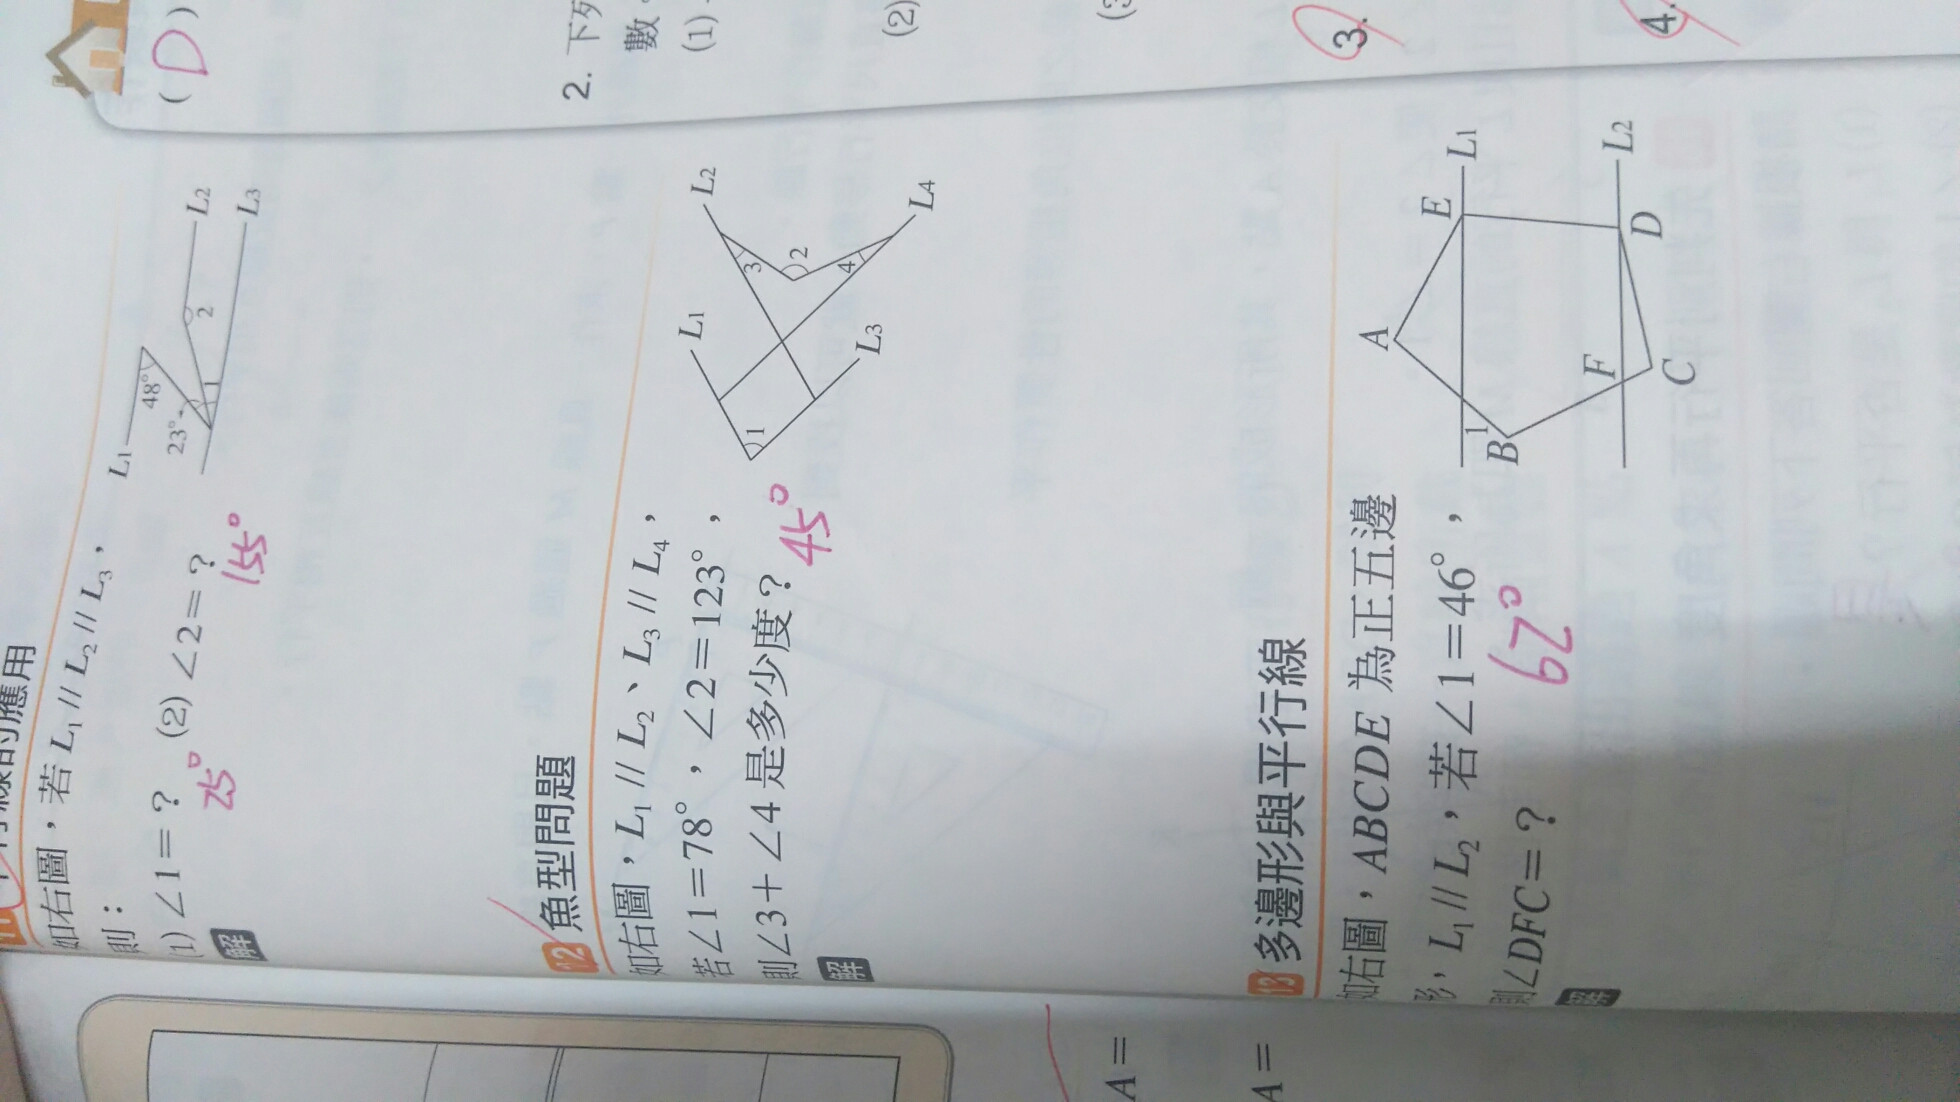 如右圖，若 L₁ // L₂ // L₃，
則：
(1) ∠1=？ (2) ∠2=？
25° 155°
解
L₁
48°
23°
1
2
L₂
L₃
12 魚型問題
如右圖，L₁ // L₂、L₃ // L₄，
若∠1=78°，∠2=123°，
則∠3+∠4 是多少度？ 45°
解
L₁
L₂
3
2
1
4
L₃
L₄
13 多邊形與平行線
如右圖，ABCDE 為正五邊
形，L₁ // L₂，若∠1=46°，
則∠DFC=？ 62°
解
A
E
L₁
1
B
F
D
L₂
C
( D )
2. 下列
數
(1)
(2)
3.
4.
A=
A=